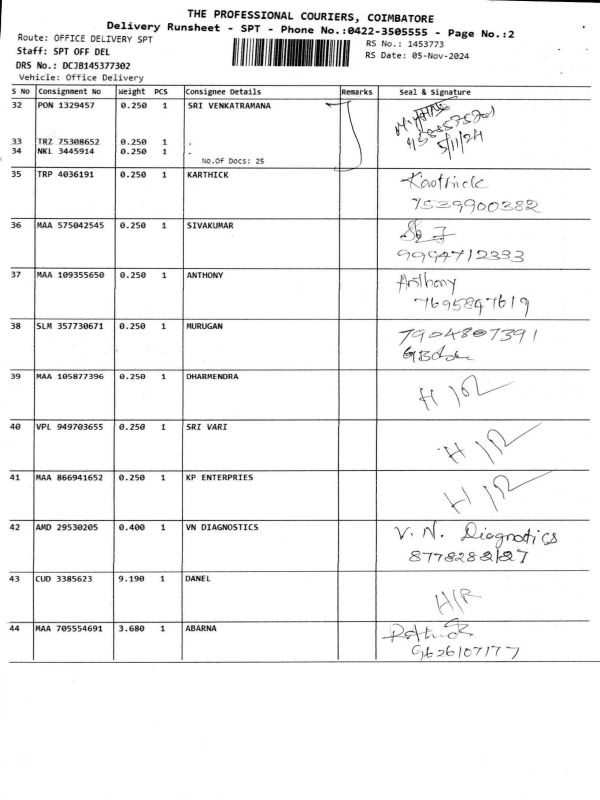 THE PROFESSIONAL COURIERS, COIMBATORE
Delivery Runsheet - SPT - Phone No.:0422-3505555 - Page No.:2
Route: OFFICE DELIVERY SPT
RS No.: 1453773
Staff: SPT OFF DEL
RS Date: 05-Nov-2024
DRS No.: DCJB145377302
Vehicle: Office Delivery
S No Consignment No Weight PCS Consignee Details Remarks Seal & Signature
32 PON 1329457 0.250 1 SRI VENKATRAMANA
33 TRZ 75308652 0.250 1 .
34 NKL 3445914 0.250 1 . 5/11/24
No.Of Docs: 25
35 TRP 4036191 0.250 1 KARTHICK Karthick
7539900382
36 MAA 575042545 0.250 1 SIVAKUMAR
9994712333
37 MAA 109355650 0.250 1 ANTHONY Anthony
7695847619
38 SLM 357730671 0.250 1 MURUGAN 7904807391
39 MAA 105877396 0.250 1 DHARMENDRA H/R
40 VPL 949703655 0.250 1 SRI VARI H/R
41 MAA 866941652 0.250 1 KP ENTERPRIES H/R
42 AMD 29530205 0.400 1 VN DIAGNOSTICS V. N. Diagnotics
43 CUD 3385623 9.190 1 DANEL H/R
44 MAA 705554691 3.680 1 ABARNA
9626107177